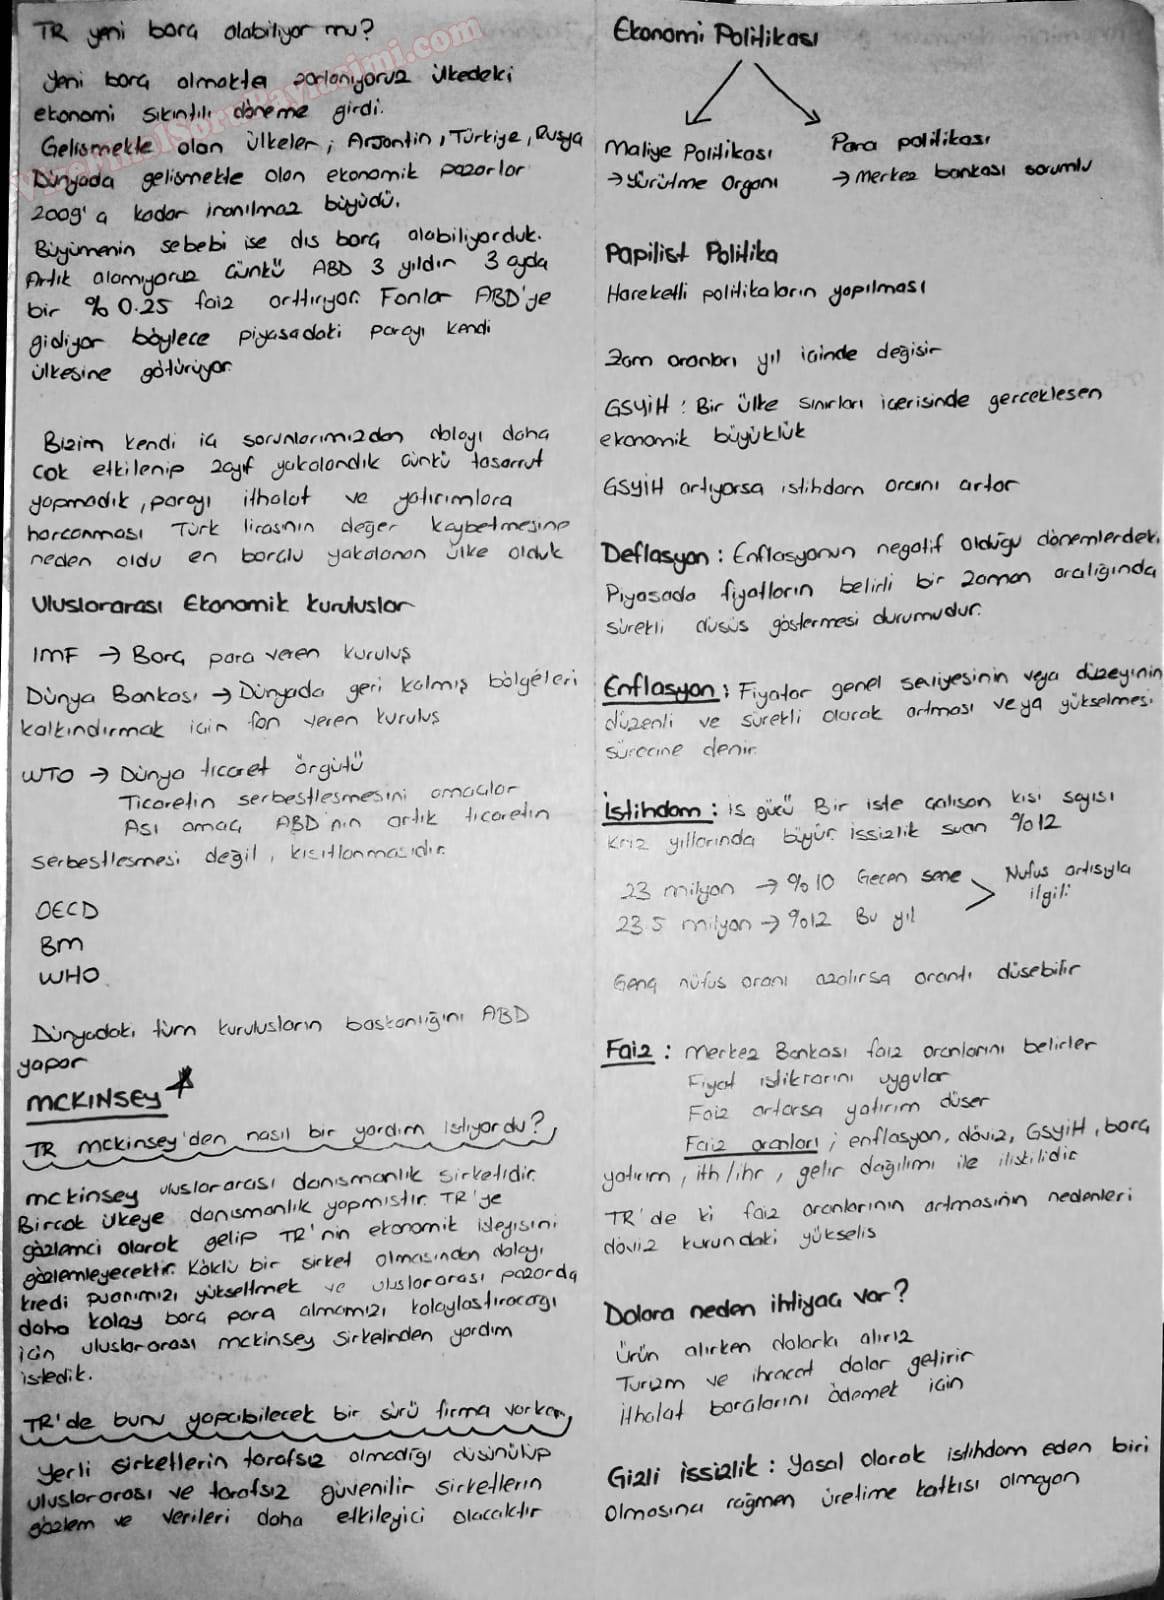 TR yeni borç alabiliyor mu?
Yeni borç almakta zorlanıyoruz ülkedeki
ekonomi sıkıntılı döneme girdi.
Gelişmekte olan ülkeler; Arjantin, Türkiye, Rusya
Dünyada gelişmekte olan ekonomik pazarlar
2009'a kadar inanılmaz büyüdü.
Büyümenin sebebi ise dış borç alabiliyorduk.
Artık alamıyoruz çünkü ABD 3 yıldır 3 ayda
bir %0.25 faiz arttırıyor. Fonlar ABD'ye
gidiyor böylece piyasadaki parayı kendi
ülkesine götürüyor.
Bizim kendi iç sorunlarımızdan dolayı daha
çok etkilenip zayıf yakalandık çünkü tasarruf
yapmadık, parayı ithalat ve yatırımlara
harcanması Türk lirasının değer kaybetmesine
neden oldu en borçlu yakalanan ülke olduk
Uluslararası Ekonomik Kuruluşlar
IMF → Borç para veren kuruluş
Dünya Bankası → Dünyada geri kalmış bölgeleri
kalkındırmak için fon veren kuruluş
WTO → Dünya ticaret örgütü
Ticaretin serbestleşmesini amaçlar
Ası amaç ABD'nin artık ticaretin
serbestleşmesi değil, kısıtlanmasıdır.
OECD
BM
WHO
Dünyadaki tüm kuruluşların başkanlığını ABD
yapar
MCKINSEY
TR mckinsey'den nasıl bir yardım istiyordu?
mckinsey uluslararası danışmanlık şirketidir.
Birçok ülkeye danışmanlık yapmıştır. TR'ye
gözlemci olarak gelip TR'nin ekonomik işleyişini
gözlemleyecektir. Köklü bir şirket olmasından dolayı
kredi puanımızı yükseltmek ve uluslararası pazarda
daha kolay borç para almamızı kolaylaştıracağı
için uluslararası mckinsey şirketinden yardım
istedik.
TR'de bunu yapabilecek bir sürü firma varken,
Yerli şirketlerin tarafsız olmadığı düşünülüp
uluslararası ve tarafsız güvenilir şirketlerin
gözlem ve verileri daha etkileyici olacaktır
Ekonomi Politikası
Maliye Politikası
→ Yürütme Organı
Para politikası
→ Merkez bankası sorumlu
Papilist Politika
Hareketli politikaların yapılması
Zam oranları yıl içinde değişir
GSYİH: Bir ülke sınırları içerisinde gerçekleşen
ekonomik büyüklük
GSYİH artıyorsa istihdam oranı artar
Deflasyon: Enflasyonun negatif olduğu dönemlerdeki
Piyasada fiyatların belirli bir zaman aralığında
sürekli düşüş göstermesi durumudur.
Enflasyon: Fiyatlar genel seviyesinin veya düzeyinin
düzenli ve sürekli olarak artması veya yükselmesi
sürecine denir.
İstihdam: iş gücü Bir işte çalışan kişi sayısı
Kriz yıllarında büyür. işsizlik şuan %12
23 milyon → %10 Geçen sene
23.5 milyon → %12 Bu yıl
Nüfus artışıyla
ilgili
Genç nüfus oranı azalırsa orantı düşebilir
Faiz: Merkez Bankası faiz oranlarını belirler
Fiyat istikrarını uygular
Faiz artarsa yatırım düşer
Faiz oranları; enflasyon, döviz, GSYİH, borç
yatırım, ith/ihr, gelir dağılımı ile ilişkilidir
TR'de ki faiz oranlarının artmasının nedenleri
döviz kurundaki yükseliş
Dolara neden ihtiyaç var?
Ürün alırken dolarla alırız
Turizm ve ihracat dolar getirir
İthalat borçlarını ödemek için
Gizli işsizlik: Yasal olarak istihdam eden biri
olmasına rağmen üretime katkısı olmayan